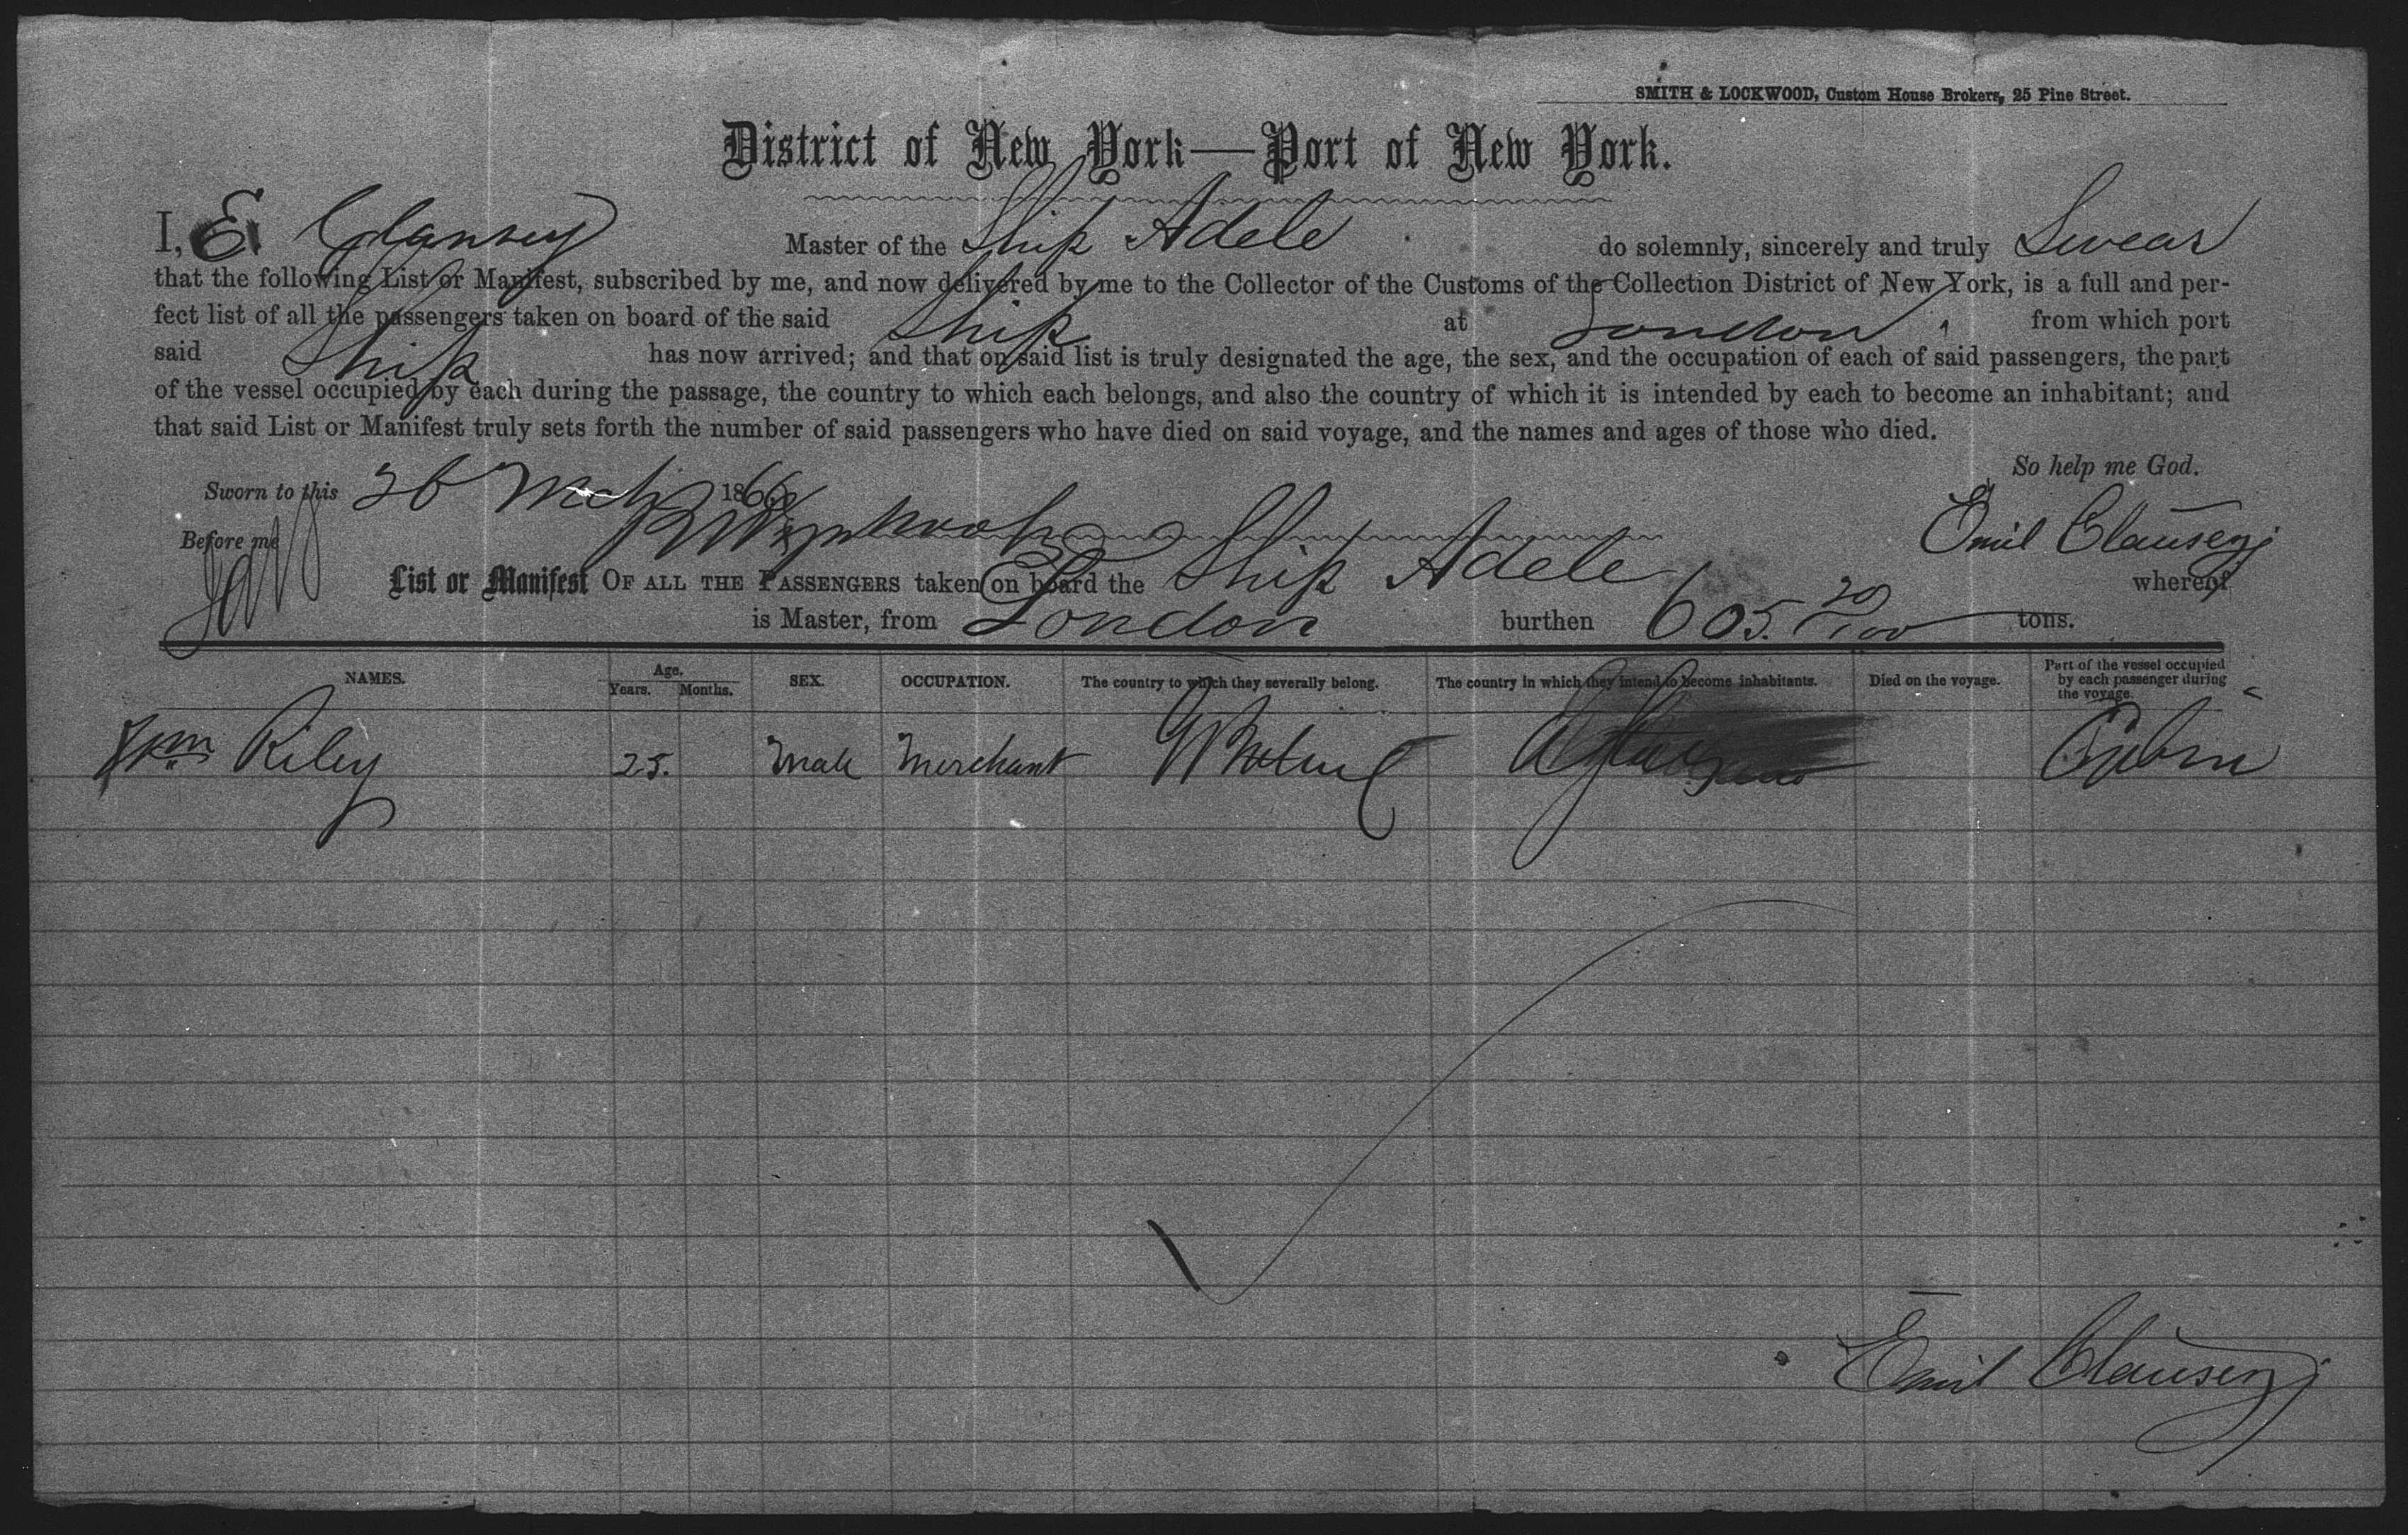 SMITH & LOCKWOOD, Custom House Brokers, 25 Pine Street.
District of New York—Port of New York.
I, E Master of the Ship Adele do solemnly, sincerely and truly Swear
that the following List or Manifest, subscribed by me, and now delivered by me to the Collector of the Customs of the Collection District of New York, is a full and per-
fect list of all the passengers taken on board of the said Ship at London from which port
said Ship has now arrived; and that on said list is truly designated the age, the sex, and the occupation of each of said passengers, the part
of the vessel occupied by each during the passage, the country to which each belongs, and also the country of which it is intended by each to become an inhabitant; and
that said List or Manifest truly sets forth the number of said passengers who have died on said voyage, and the names and ages of those who died.
So help me God.
Sworn to this 26 Mch 1866
Before me Emil Clausen
List or Manifest OF ALL THE PASSENGERS taken on board the Ship Adele whereof
is Master, from London burthen 605. 20/100 tons.
NAMES. Age. Years. Months. SEX. OCCUPATION. The country to which they severally belong. The country in which they intend to become inhabitants. Died on the voyage. Part of the vessel occupied by each passenger during the voyage.
Wm Riley 25. Male Merchant Cabin
Emil Clausen